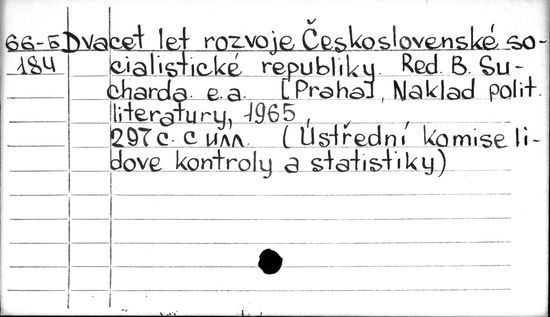 66-5 Dvacet let rozvoje Československé so-
184 cialistické republiky. Red. B. Su-
charda e.a. [Praha], Naklad polit.
literatury, 1965.
297 с. с илл. (Ústřední komise li-
dove kontroly a statistiky)